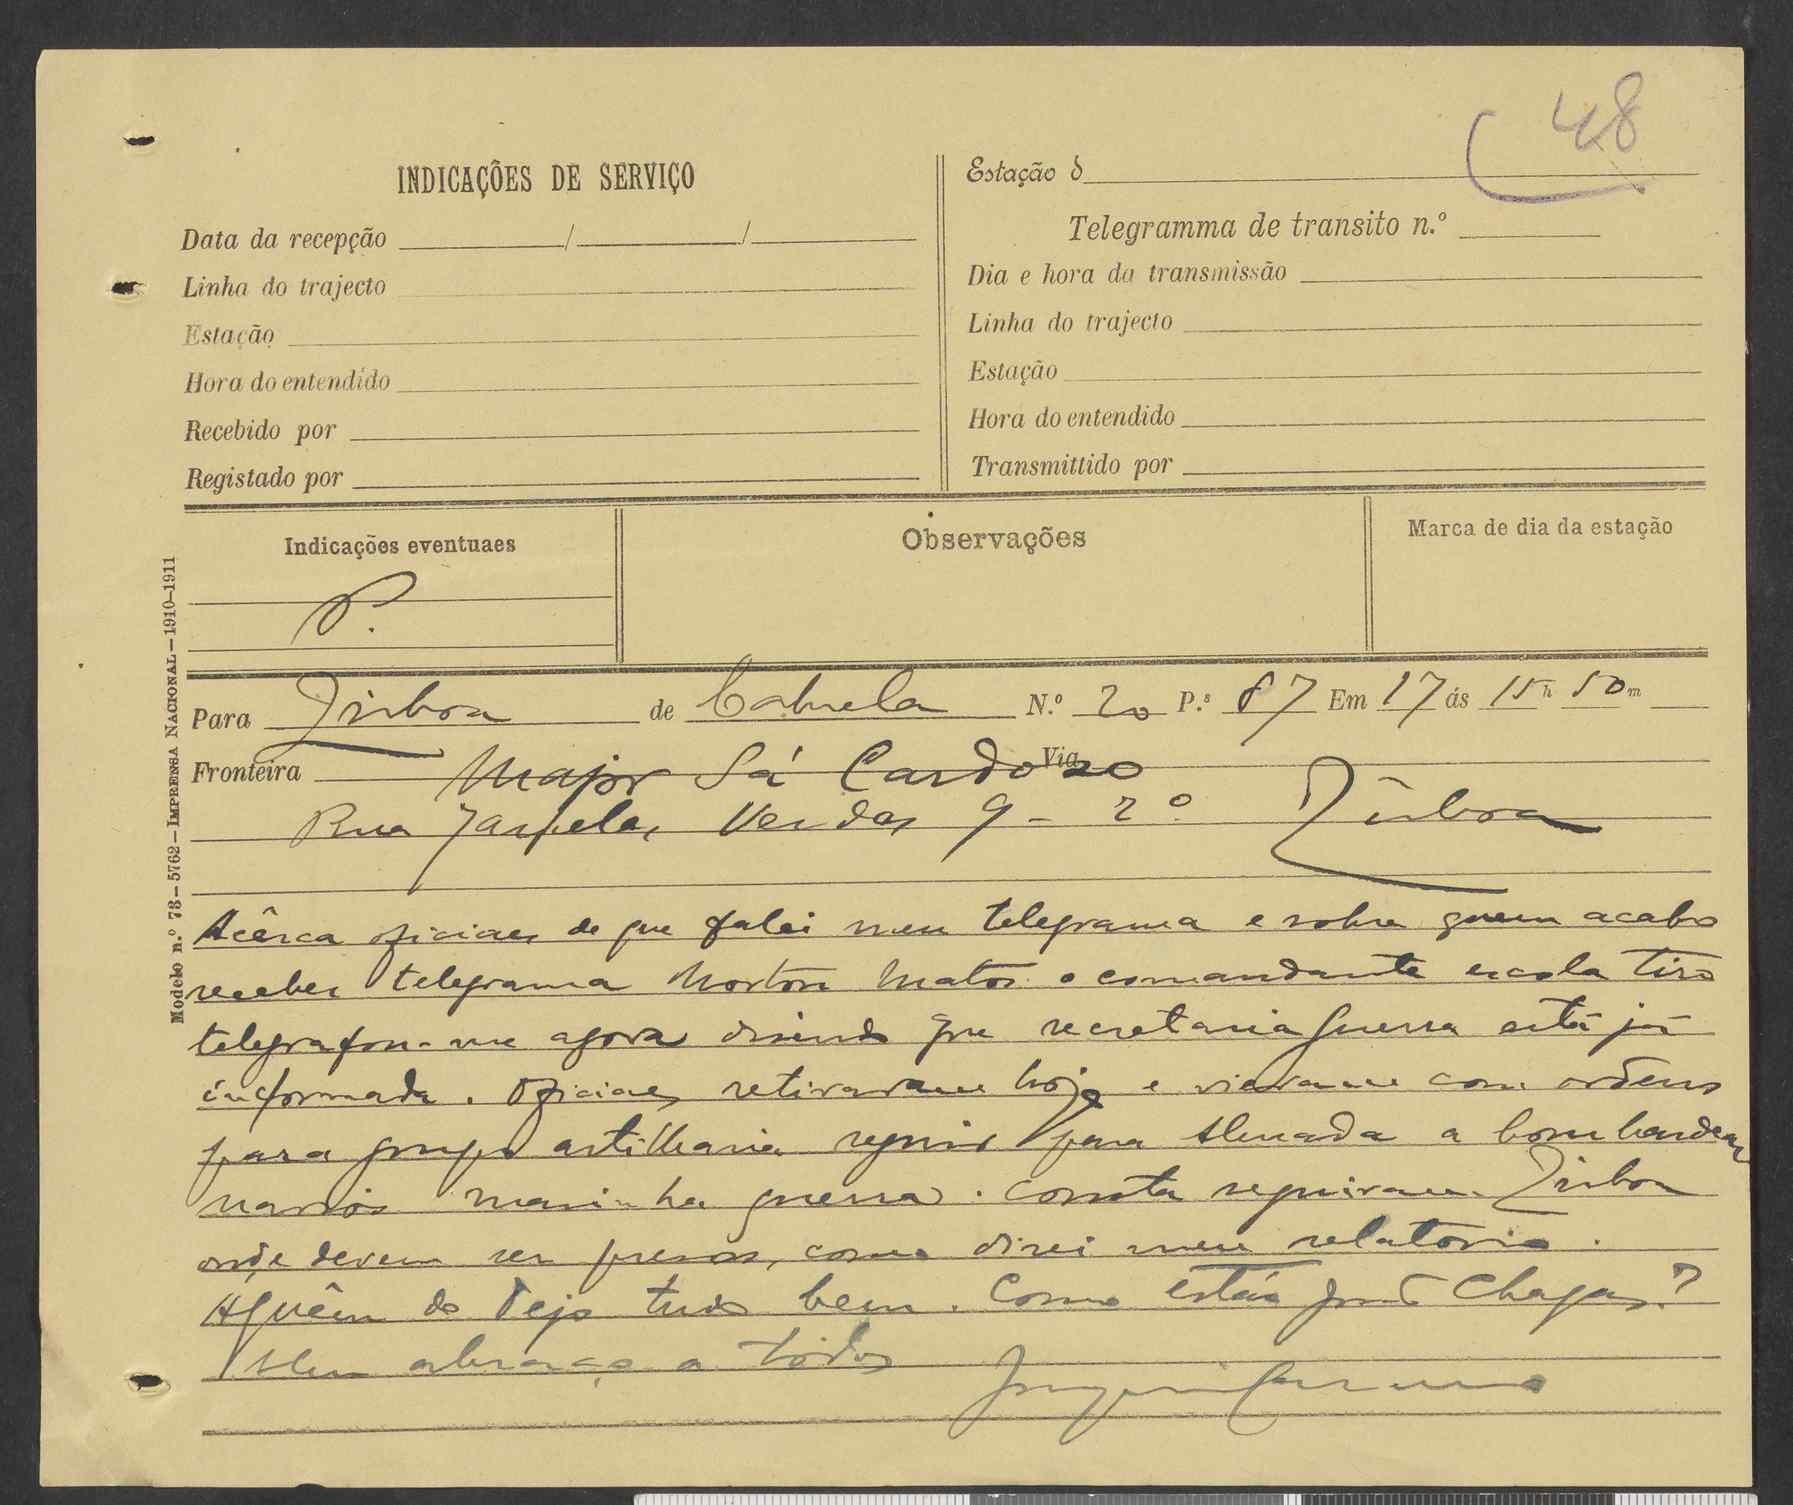 48
INDICAÇÕES DE SERVIÇO
Data da recepção / /
Linha do trajecto
Estação
Hora do entendido
Recebido por
Registado por
Estação d
Telegramma de transito n.º
Dia e hora da transmissão
Linha do trajecto
Estação
Hora do entendido
Transmittido por
Indicações eventuaes
P.
Observações
Marca de dia da estação
Modelo n.º 73 — 5762 — IMPRENSA NACIONAL — 1910-1911
Para Lisboa de Cabrela N.º 20 P.s 87 Em 17 ás 15 h 50 m
Fronteira Via
Major Sá Cardoso
Rua Janelas Verdes 9 - 2º Lisboa
Acêrca oficiaes de que falei meu telegrama e sobre quem acabo
receber telegrama Norton Matos o comandante escola tiro
telegrafou-me agora dizendo que secretaria guerra está já
informada. Oficiaes retiraram hoje e vieram com ordens
para grupo artilharia seguir para Almada a bombardear
navios marinha guerra. Consta seguiram Lisboa
onde devem ser presos, como direi meu relatorio.
Aquêm do Tejo tudo bem. Como estás João Chagas?
Um abraço a todos